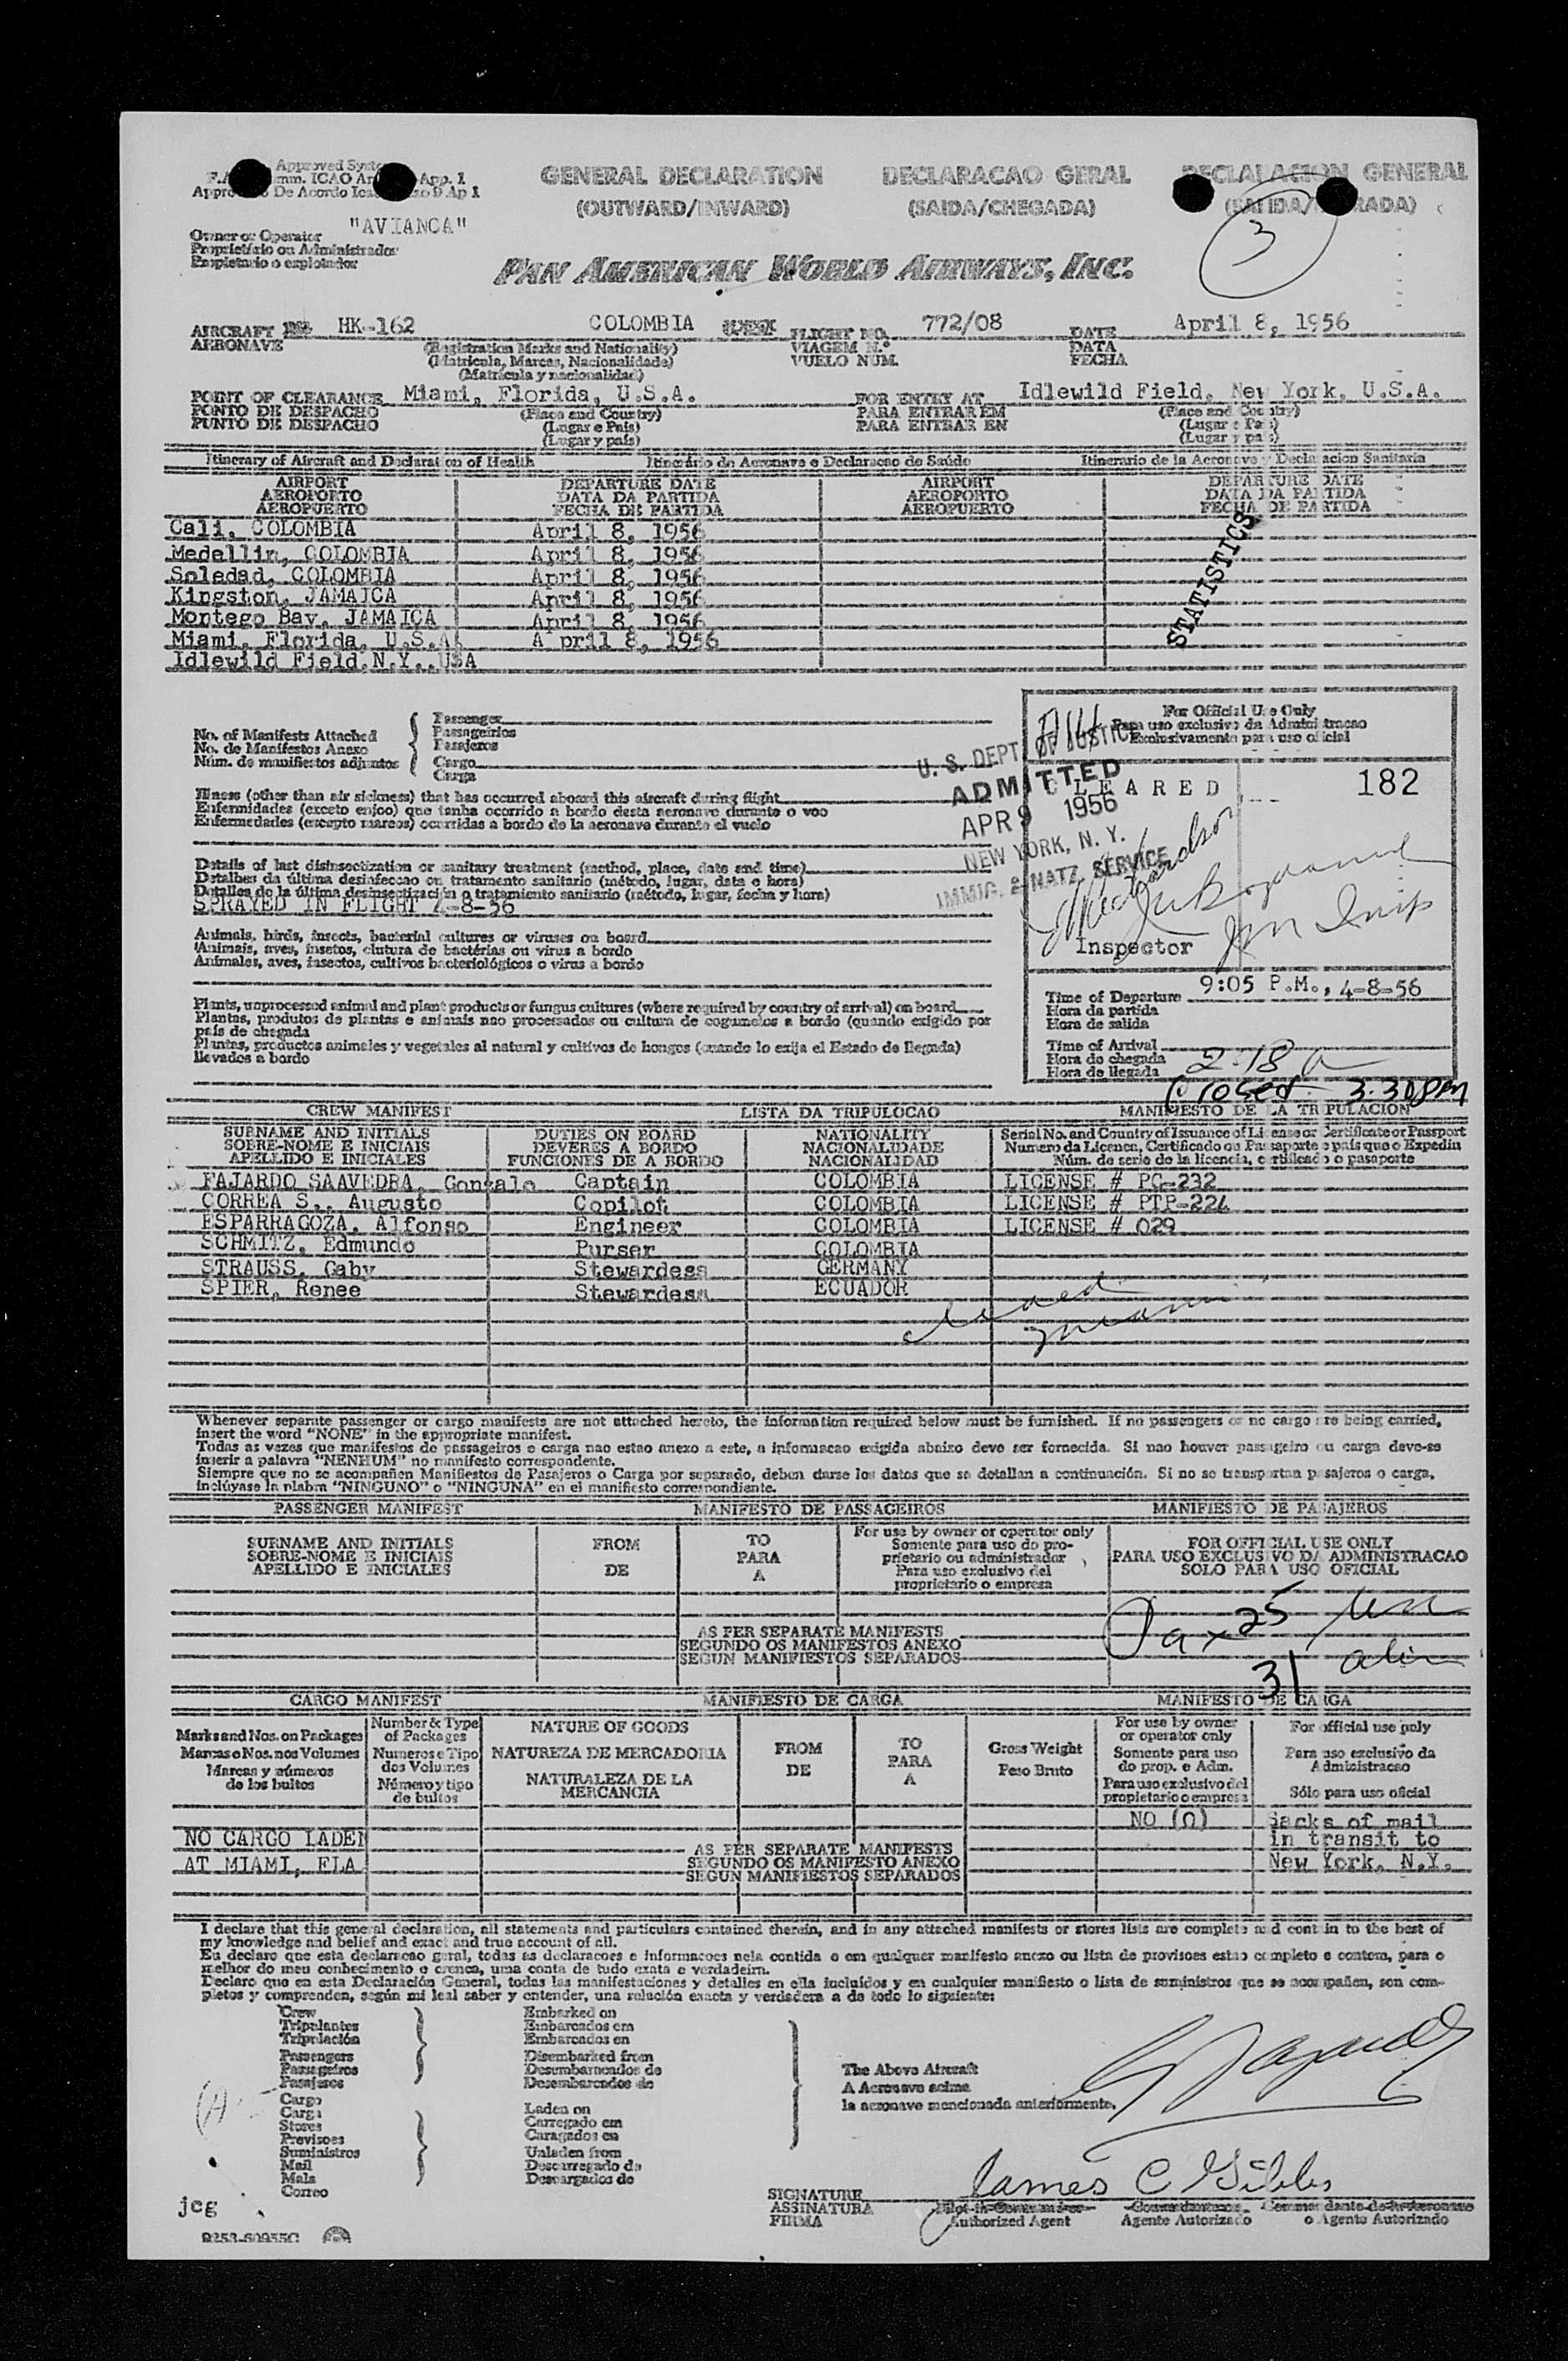 Approved
App. 1
De Acordo
9 Ap 1
GENERAL DECLARATION
(OUTWARD/INWARD)
DECLARACAO GERAL
(SAIDA/CHEGADA)
DECLARACION GENERAL
3
"AVIANCA"
Owner or Operator
Proprietário ou Administrador
Propietario o explotador
PAN AMERICAN WORLD AIRWAYS, INC.
AIRCRAFT HK-162 COLOMBIA FLIGHT NO. 772/08 DATE April 8, 1956
AERONAVE (Registration Marks and Nationality) VIAGEM N.° DATA
(Matricula, Marcas, Nacionalidade) VUELO NUM. FECHA
(Matrícula y nacionalidad)
POINT OF CLEARANCE Miami, Florida, U.S.A. FOR ENTRY AT Idlewild Field, New York, U.S.A.
PONTO DE DESPACHO (Place and Country) PARA ENTRAR EM (Place and Country)
PUNTO DE DESPACHO (Lugar e País) PARA ENTRAR EN (Lugar e País)
(Lugar y país) (Lugar y país)
Itinerary of Aircraft and Declaration of Health Itinerário da Aeronave e Declaracao de Saúde Itinerario de la Aeronave y Declaracion Sanitaria
AIRPORT DEPARTURE DATE AIRPORT DEPARTURE DATE
AEROPORTO DATA DA PARTIDA AEROPORTO DATA DA PARTIDA
AEROPUERTO FECHA DE PARTIDA AEROPUERTO FECHA DE PARTIDA
Cali, COLOMBIA April 8, 1956
Medellin, COLOMBIA April 8, 1956
Soledad, COLOMBIA April 8, 1956
Kingston, JAMAICA April 8, 1956
Montego Bay, JAMAICA April 8, 1956
Miami, Florida, U.S.A. A pril 8, 1956
Idlewild Field,N.Y.,USA
STATISTICS
No. of Manifests Attached
No. de Manifestos Anexo
Núm. de manifiestos adjuntos
Passenger
Passageirios
Pasajeros
Cargo
Carga
For Official Use Only
Para uso exclusivo da Administracao
Exclusivamente para uso oficial
U. S. DEPT. OF JUSTICE
ADMITTED
APR 9 1956
NEW YORK, N. Y.
IMMIG. & NATZ. SERVICE
CLEARED
182
Inspector
Illness (other than air sickness) that has occurred aboard this aircraft during flight
Enfermidades (exceto enjoo) que tenha ocorrido a bordo desta aeronave durante o voo
Enfermedades (excepto mareos) ocurridas a bordo de la aeronave durante el vuelo
Details of last disinsectization or sanitary treatment (method, place, date and time)
Detalhes da última desinfeccao ou tratamento sanitario (método, lugar, data e hora)
Detalles de la última desinsectización o tratamiento sanitario (método, lugar, fecha y hora)
SPRAYED IN FLIGHT 4-8-56
Animals, birds, insects, bacterial cultures or viruses on board
Animais, aves, insetos, clutura de bactérias ou virus a bordo
Animales, aves, insectos, cultivos bacteriológicos o virus a bordo
Plants, unprocessed animal and plant products or fungus cultures (where required by country of arrival) on board
Plantas, produtos de plantas e animais nao processados ou cultura de cogumelos a bordo (quando exigido por
país de chegada
Plantas, productos animeles y vegetales al natural y cultivos de hongos (cuando lo exija el Estado de llegada)
llevados a bordo
Time of Departure 9:05 P.M., 4-8-56
Hora da partida
Hora de salida
Time of Arrival
Hora do chegada
Hora de llegada 2:18 a
Closed 3.30pm
CREW MANIFEST LISTA DA TRIPULOCAO MANIFIESTO DE LA TRIPULACION
SURNAME AND INITIALS DUTIES ON BOARD NATIONALITY Serial No. and Country of Issuance of License or Certificate or Passport
SOBRE-NOME E INICIAIS DEVERES A BORDO NACIONALIDADE Numero da Licenca, Certificado ou Passaporte e país que o Expediu
APELLIDO E INICIALES FUNCIONES DE A BORDO NACIONALIDAD Núm. de serie de la licencia, certificado o pasaporte
FAJARDO SAAVEDRA, Gonzalo Captain COLOMBIA LICENSE # PC-232
CORREA S., Augusto Copilot COLOMBIA LICENSE # PTP-224
ESPARRAGOZA, Alfonso Engineer COLOMBIA LICENSE # 029
SCHMITZ, Edmundo Purser COLOMBIA
STRAUSS, Gaby Stewardess GERMANY
SPIER, Renee Stewardess ECUADOR
Miami
Whenever separate passenger or cargo manifests are not attached hereto, the information required below must be furnished. If no passengers or no cargo are being carried,
insert the word "NONE" in the appropriate manifest.
Todas as vezes que manifestos de passageiros e carga nao estao anexo a este, a informacao exigida abaixo deve ser fornecida. Si nao houver passageiro ou carga deve-se
inserir a palavra "NENHUM" no manifesto correspondente.
Siempre que no se acompañen Manifiestos de Pasajeros o Carga por separado, deben darse los datos que se detallan a continuación. Si no se transportan pasajeros o carga,
inclúyase la plabra "NINGUNO" o "NINGUNA" en el manifiesto correspondiente.
PASSENGER MANIFEST MANIFESTO DE PASSAGEIROS MANIFIESTO DE PASAJEROS
SURNAME AND INITIALS
SOBRE-NOME E INICIAIS
APELLIDO E INICIALES
FROM
DE
TO
PARA
A
For use by owner or operator only
Somente para uso do pro-
prietario ou administrador
Para uso exclusivo del
proprietario o empresa
FOR OFFICIAL USE ONLY
PARA USO EXCLUSIVO DA ADMINISTRACAO
SOLO PARA USO OFICIAL
AS PER SEPARATE MANIFESTS
SEGUNDO OS MANIFESTOS ANEXO
SEGUN MANIFIESTOS SEPARADOS
Pax 25
31
CARGO MANIFEST MANIFIESTO DE CARGA MANIFESTO DE CARGA
Marks and Nos. on Packages
Marcas e Nos. nos Volumes
Marcas y números
de los bultos
Number & Type
of Packages
Numeros e Tipo
dos Volumes
Número y tipo
de bultos
NATURE OF GOODS
NATUREZA DE MERCADORIA
NATURALEZA DE LA
MERCANCIA
FROM
DE
TO
PARA
A
Gross Weight
Peso Bruto
For use by owner
or operator only
Somente para uso
do prop. e Adm.
Para uso exclusivo del
propietario o empresa
For official use only
Para uso exclusivo da
Administracao
Sólo para uso oficial
NO (0) Sacks of mail
in transit to
New York, N.Y.
NO CARGO LADEN
AT MIAMI, FLA
AS PER SEPARATE MANIFESTS
SEGUNDO OS MANIFESTO ANEXO
SEGUN MANIFIESTOS SEPARADOS
I declare that this general declaration, all statements and particulars contained therein, and in any attached manifests or stores lists are complete and contain to the best of
my knowledge and belief and exact and true account of all.
Eu declaro que esta declaracao geral, todas as declaracoes e informacoes nela contida o em qualquer manifesto anexo ou lista de provisoes estao completo e contem, para o
melhor do meu conhecimento e crenca, uma conta de tudo exata e verdadeira.
Declaro que en esta Declaración General, todas las manifestaciones y detalles en ella incluídos y en cualquier manifiesto o lista de suministros que se acompañen, son com-
pletos y comprenden, según mi leal saber y entender, una relación exacta y verdadera a de todo lo siguiente:
Crew
Tripulantes
Tripulación
Passengers
Passageiros
Pasajeros
Cargo
Carga
Stores
Provisoes
Suministros
Mail
Mala
Correo
Embarked on
Embarcados em
Embarcados en
Disembarked from
Desembarcados de
Desembarcados de
Laden on
Carregado em
Caragados en
Unladen from
Descarregado da
Descargados de
The Above Aircraft
A Aeronave acima
la aeronave mencionada anteriormente.
SIGNATURE James C Gibbs
ASSINATURA
FIRMA
Authorized Agent Agente Autorizado o Agente Autorizado
jcg